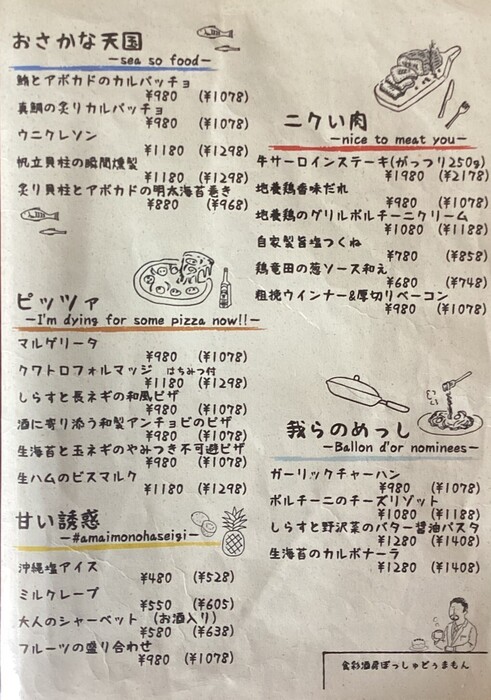 おさかな天国
-sea so food-
鮪とアボカドのカルパッチョ
¥980 (¥1078)
真鯛の炙りカルパッチョ
¥980 (¥1078)
ウニクレソン
¥1180 (¥1298)
帆立貝柱の瞬間燻製
¥1180 (¥1298)
炙り貝柱とアボカドの明太海苔巻き
¥880 (¥968)
ピッツァ
-I'm dying for some pizza now!!-
マルゲリータ
¥980 (¥1078)
クワトロフォルマッジ はちみつ付
¥1180 (¥1298)
しらすと長ネギの和風ピザ
¥980 (¥1078)
酒に寄り添う和製アンチョビのピザ
¥980 (¥1078)
生海苔と玉ネギのやみつき不可避ピザ
¥980 (¥1078)
生ハムのビスマルク
¥1180 (¥1298)
甘い誘惑
-#amaimonohaseigi-
沖縄塩アイス
¥480 (¥528)
ミルクレープ
¥550 (¥605)
大人のシャーベット (お酒入り)
¥580 (¥638)
フルーツの盛り合わせ
¥980 (¥1078)
ニクい肉
-nice to meat you-
牛サーロインステーキ(がっつり250g)
¥1980 (¥2178)
地養鶏香味だれ
¥980 (¥1078)
地養鶏のグリルポルチーニクリーム
¥1080 (¥1188)
自家製旨塩つくね
¥780 (¥858)
鶏竜田の葱ソース和え
¥680 (¥748)
粗挽ウインナー&厚切りベーコン
¥980 (¥1078)
我らのめっし
-Ballon d'or nominees-
ガーリックチャーハン
¥980 (¥1078)
ポルチーニのチーズリゾット
¥1080 (¥1188)
しらすと野沢菜のバター醤油パスタ
¥1280 (¥1408)
生海苔のカルボナーラ
¥1280 (¥1408)
食彩酒房ぼっしゅどぅまもん